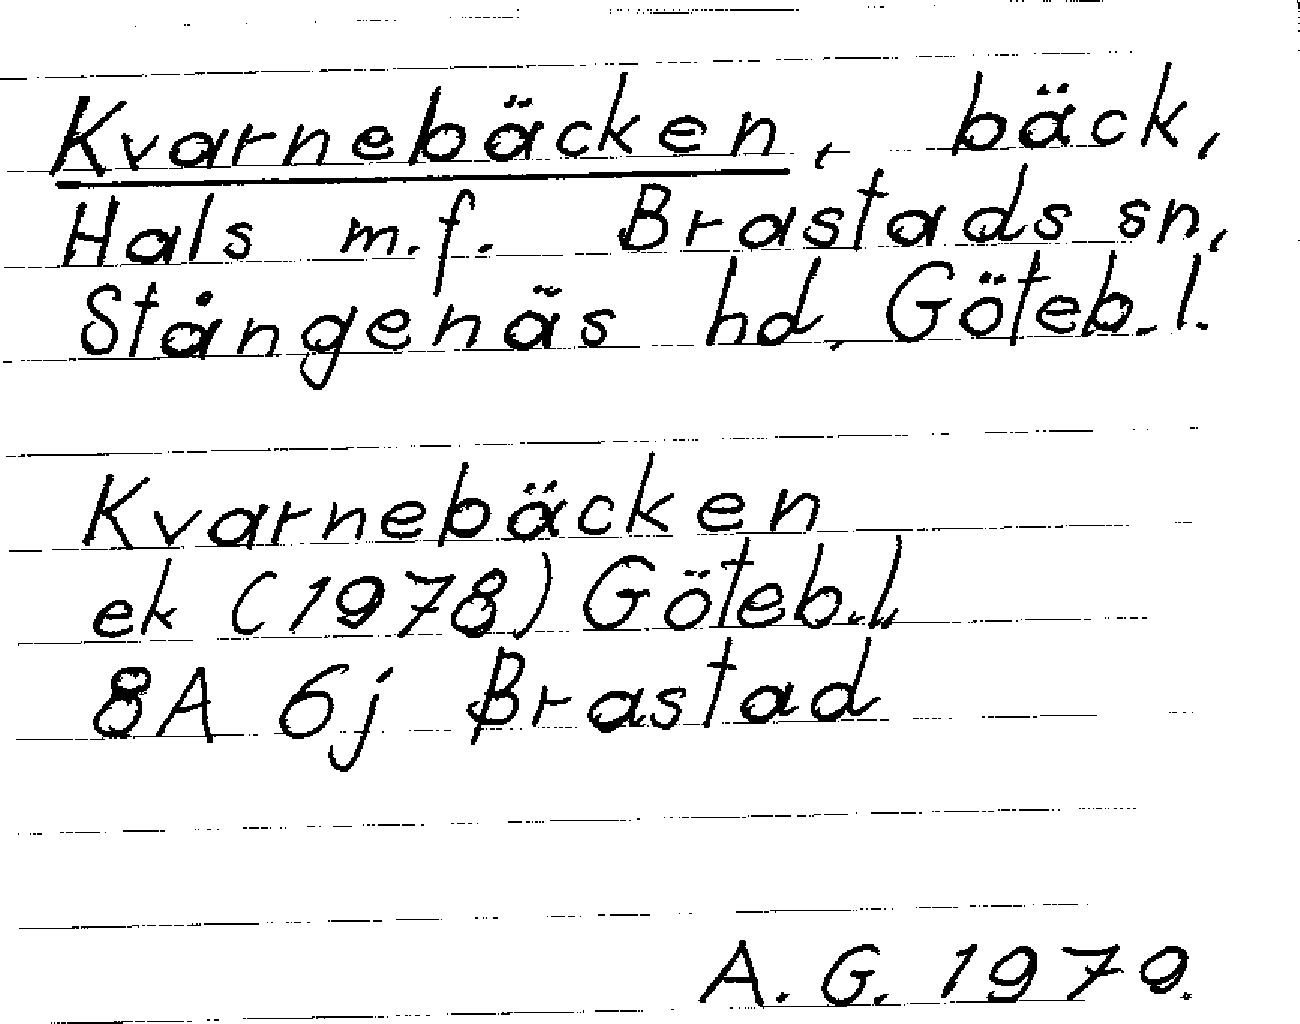 Kvarnebäcken, bäck,
Hals m.f. Brastads sn,
Stångenäs hd, Göteb.l.
Kvarnebäcken
ek (1978) Göteb.l.
8A 6j Brastad
A.G. 1979.